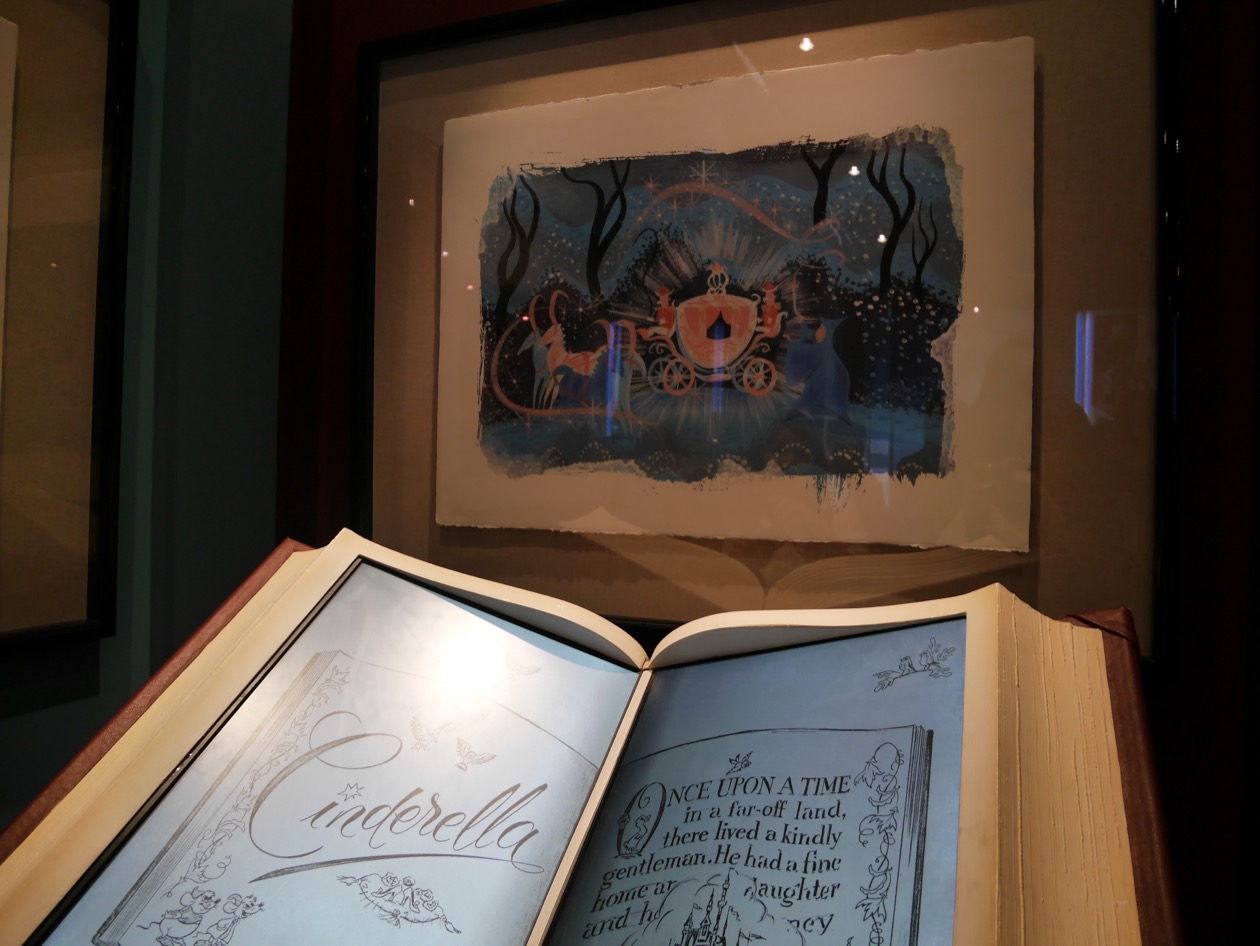 Cinderella
ONCE UPON A TIME
in a far-off land,
there lived a kindly
gentleman. He had a fine
home
and